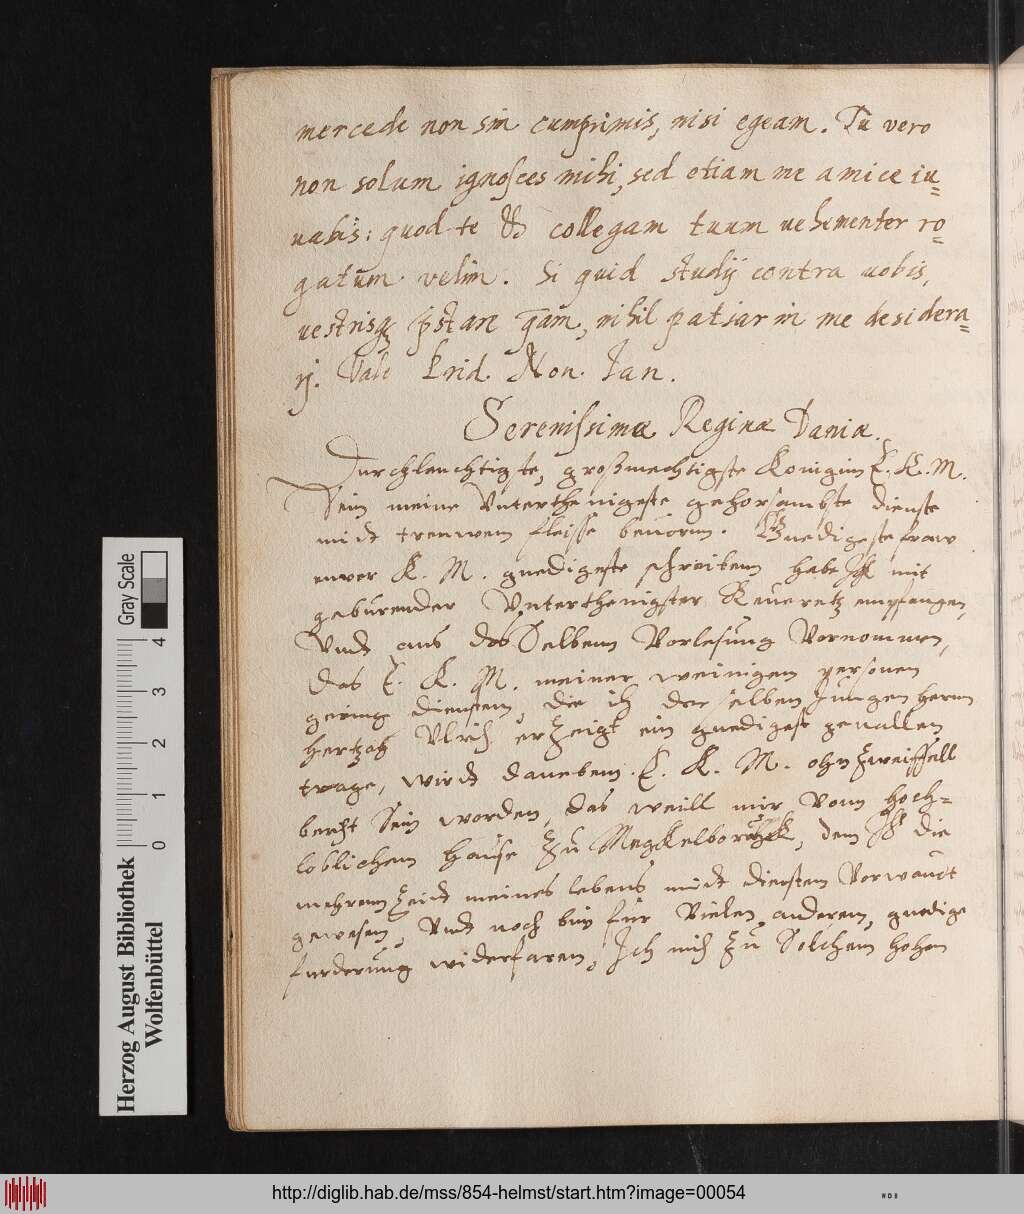 mercede non sim cumprimis, nisi egeam. Tu vero
non solum ignosces mihi, sed etiam me amice iu=
uabis: quod te & collegam tuum uehementer ro=
gatum velim. Si quid studij contra uobis,
vestrisq; pstare q̃am, nihil patiar in me desidera=
rj. Vale Prid. Non. Jan.
Serenissimæ Reginæ Daniæ.
Durchleuchtigste, großmechtigste Konigin E. K. M.
Sein meine Vnterthenigeste gehorsambste dienste
midt treuwem fleisse beuorn. Gnedigeste fraw
euwer K. M. gnedigeste schreibem habe Ich mit
geburender Vnterthenigster Reueretz empfangen,
Vnd aus des Selbem Vorlesung Vornommen,
Das E. K. M. meiner weinigen personen
gering diensten, die ich der selben Jungen herrn
Hertzog Ulrich erZeigt ein gnedigst geuallen
trage, wirdt danebem E. K. M. ohn Zweiffell
bericht Sein worden, das weill mir Vom hoch=
loblichem Hause Zu Megkelborgk, dem Ich die
mehrem Zeidt meines lebens midt diensten Vorwandt
gewesen, Vnd noch bin fur Vielen anderem, gnedige
furderung widerfarem, Ich mich Zu Solchem hohen
Herzog August Bibliothek
Wolfenbüttel
Gray Scale
0 1 2 3 4
http://diglib.hab.de/mss/854-helmst/start.htm?image=00054
WDB